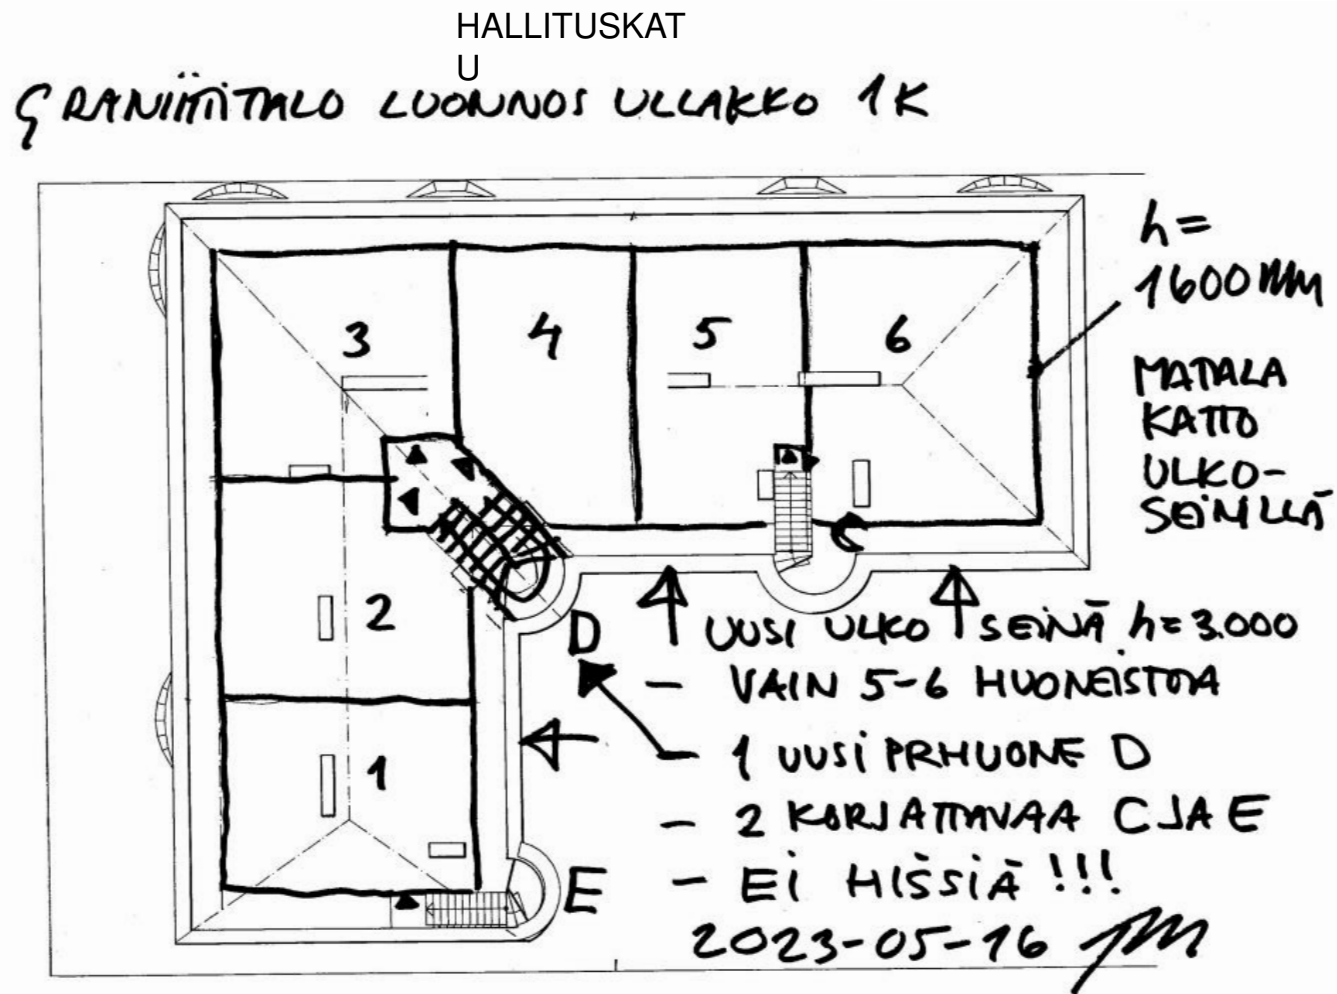 HALLITUSKAT
U
GRANIITTITALO LUONNOS ULLAKKO 1K
h=
1600MM
3
4
5
6
MATALA
KATTO
ULKO-
SEINILLÄ
C
2
D
UUSI ULKO SEINÄ h=3.000
- VAIN 5-6 HUONEISTOA
1
- 1 UUSI PRHUONE D
- 2 KORJATTAVAA C JA E
E
- EI HISSIÄ !!!
2023-05-16